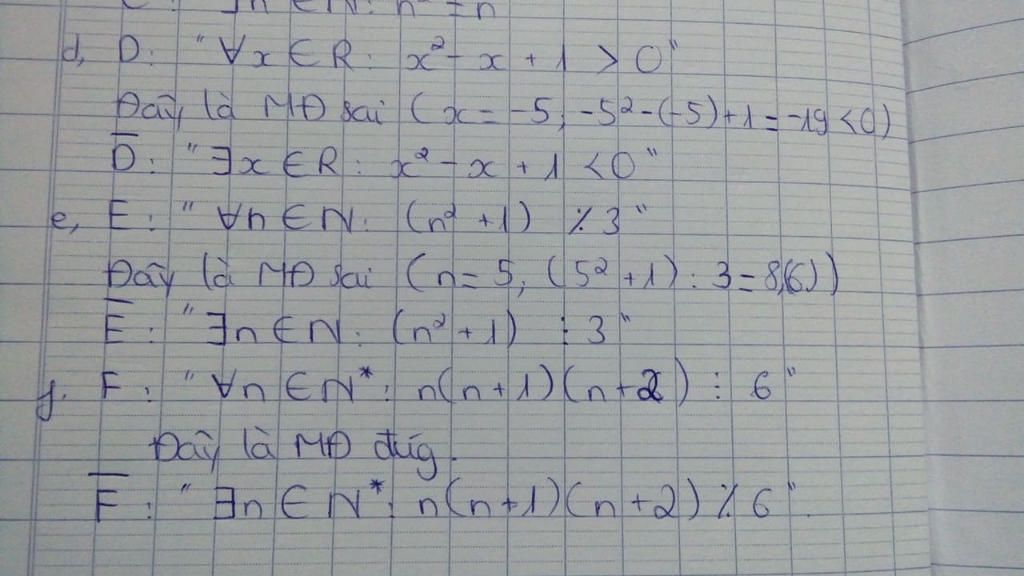 C: ∃n ∈ N: n² = n
d, D: "∀x ∈ R: x² - x + 1 > 0"
Đây là MĐ sai (x = -5, -5² - (-5) + 1 = -19 < 0)
D̅: "∃x ∈ R: x² - x + 1 < 0"
e, E: "∀n ∈ N: (n² + 1) ⋮̸ 3"
Đây là MĐ sai (n = 5, (5² + 1) : 3 = 8,(6))
E̅: "∃n ∈ N: (n² + 1) ⋮ 3"
f. F: "∀n ∈ N*: n(n+1)(n+2) ⋮ 6"
Đây là MĐ đúg.
F̅: "∃n ∈ N*: n(n+1)(n+2) ⋮̸ 6".